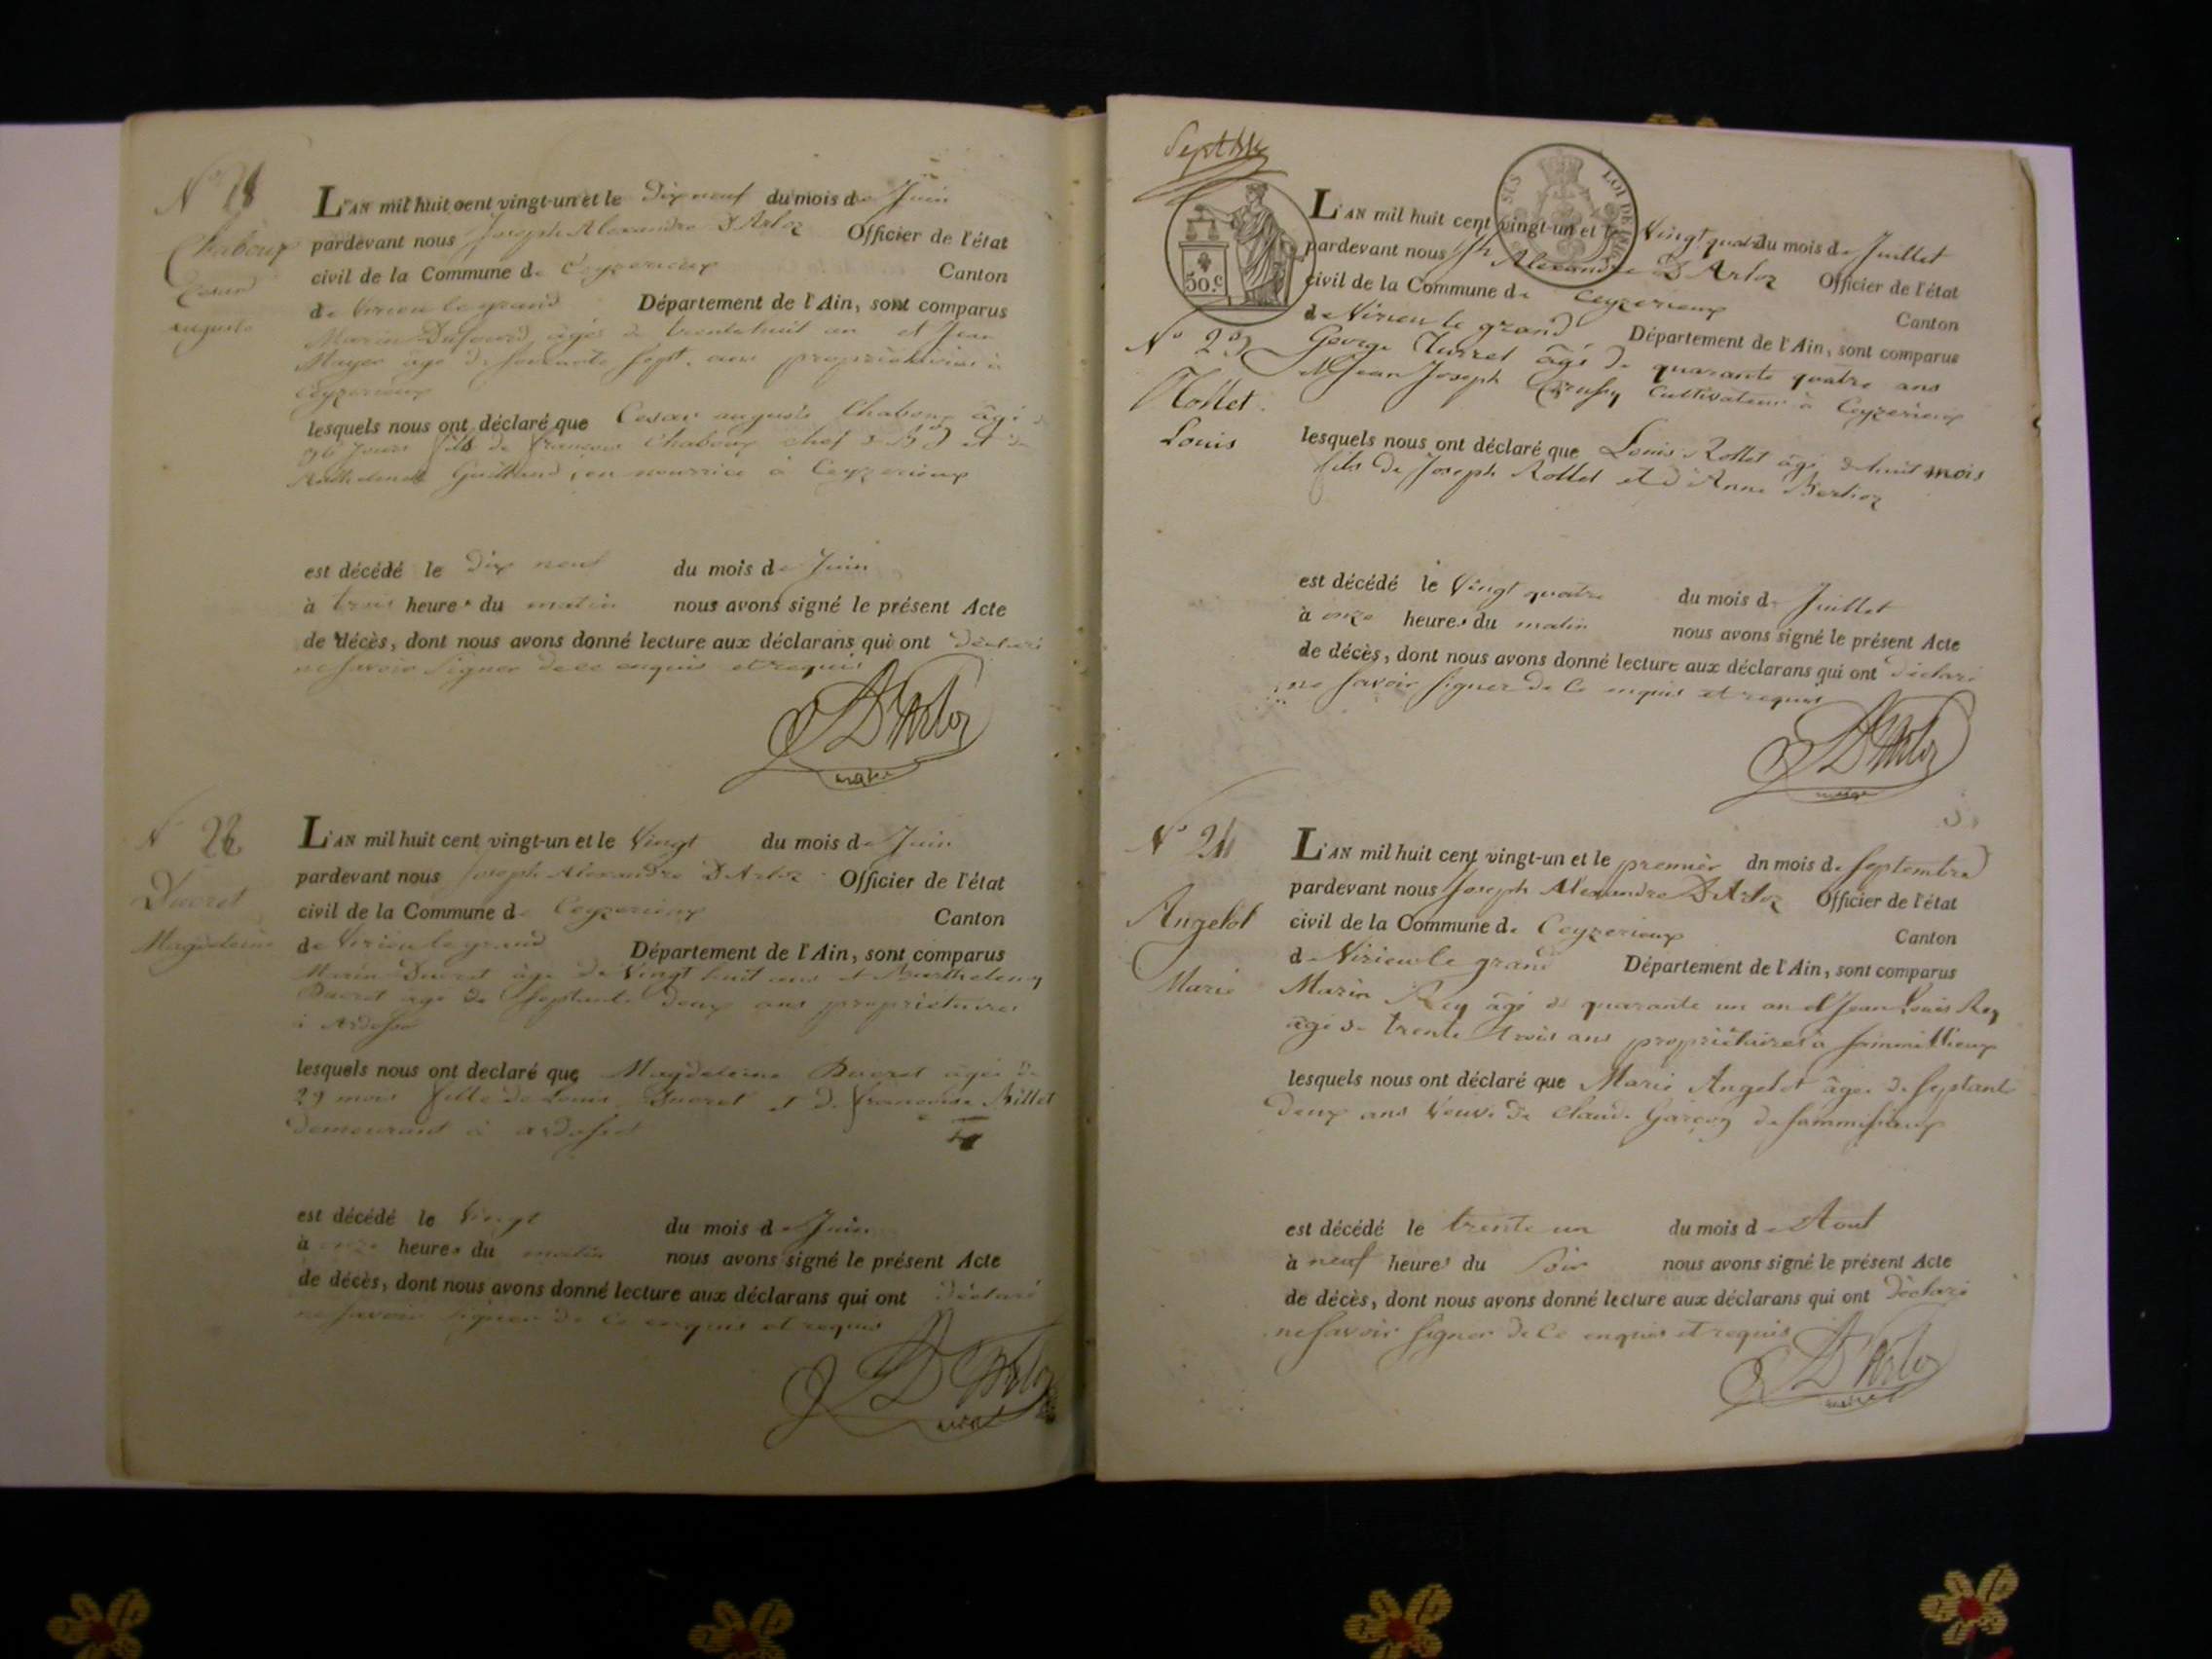 N° 28
Chaboux
Cesar
auguste
L'AN mil huit cent vingt-un et le Dix neuf du mois de Juin
pardevant nous Joseph Alexandre D'Arloz Officier de l'état
civil de la Commune de Ceyzerieux Canton
de Virieu le grand Département de l'Ain, sont comparus
Marin Dufourd âgé de trente huit an et Jean
âgé de soixante sept ans propriétaires à
Ceyzerieux
lesquels nous ont déclaré que Cesar auguste Chaboux âgé de
jours fils de francois Chaboux chef de et de
en nourrice à Ceyzerieux
est décédé le dix neuf du mois de Juin
à trois heures du matin nous avons signé le présent Acte
de décès, dont nous avons donné lecture aux déclarans qui ont déclaré
ne savoir signer de ce enquis et requis
D'Arloz
maire
N° 22
Ducret
Magdeleine
L'AN mil huit cent vingt-un et le Vingt du mois de Juin
pardevant nous Joseph Alexandre D'Arloz Officier de l'état
civil de la Commune de Ceyzerieux Canton
de Virieu le grand Département de l'Ain, sont comparus
Marin Ducret âgé de Vingt huit ans et Barthelemy
Ducret âgé de septante deux ans propriétaires
à Ardosset
lesquels nous ont declaré que Magdeleine Ducret âgée de
29 mois fille de Louis Ducret et de francoise Billet
demeurant à ardosset
est décédé le Vingt du mois de Juin
à onze heures du matin nous avons signé le présent Acte
de décès, dont nous avons donné lecture aux déclarans qui ont déclaré
ne savoir signer de ce enquis et requis
D'Arloz
maire
Septbre
50.c
SUS LOI DE 1816
L'AN mil huit cent vingt-un et le Vingt quatre du mois de Juillet
pardevant nous Jh Alexandre D'Arloz Officier de l'état
civil de la Commune de Ceyzerieux Canton
de Virieu le grand Département de l'Ain, sont comparus
N° 23
Rollet
Louis
George Turrel âgé de quarante quatre ans
et Jean Joseph Cultivateurs à Ceyzerieux
lesquels nous ont déclaré que Louis Rollet âgé de huit mois
fils de Joseph Rollet et d'Anne Berlioz
est décédé le Vingt quatre du mois de Juillet
à onze heures du matin nous avons signé le présent Acte
de décès, dont nous avons donné lecture aux déclarans qui ont déclaré
ne savoir signer de ce enquis et requis
D'Arloz
maire
N° 24
Angelot
Marie
L'AN mil huit cent vingt-un et le premier dn mois de septembre
pardevant nous Joseph Alexandre D'Arloz Officier de l'état
civil de la Commune de Ceyzerieux Canton
de Virieu le grand Département de l'Ain, sont comparus
Marin Rey âgé de quarante un an et Jean Louis Rey
âgé de trente trois ans propriétaires à sammissieux
lesquels nous ont déclaré que Marie Angelot âgée de septante
deux ans Veuve de Claude Garçon de sammissieux
est décédé le trente un du mois de Aout
à neuf heures du soir nous avons signé le présent Acte
de décès, dont nous avons donné lecture aux déclarans qui ont déclaré
ne savoir signer de ce enquis et requis
D'Arloz
maire